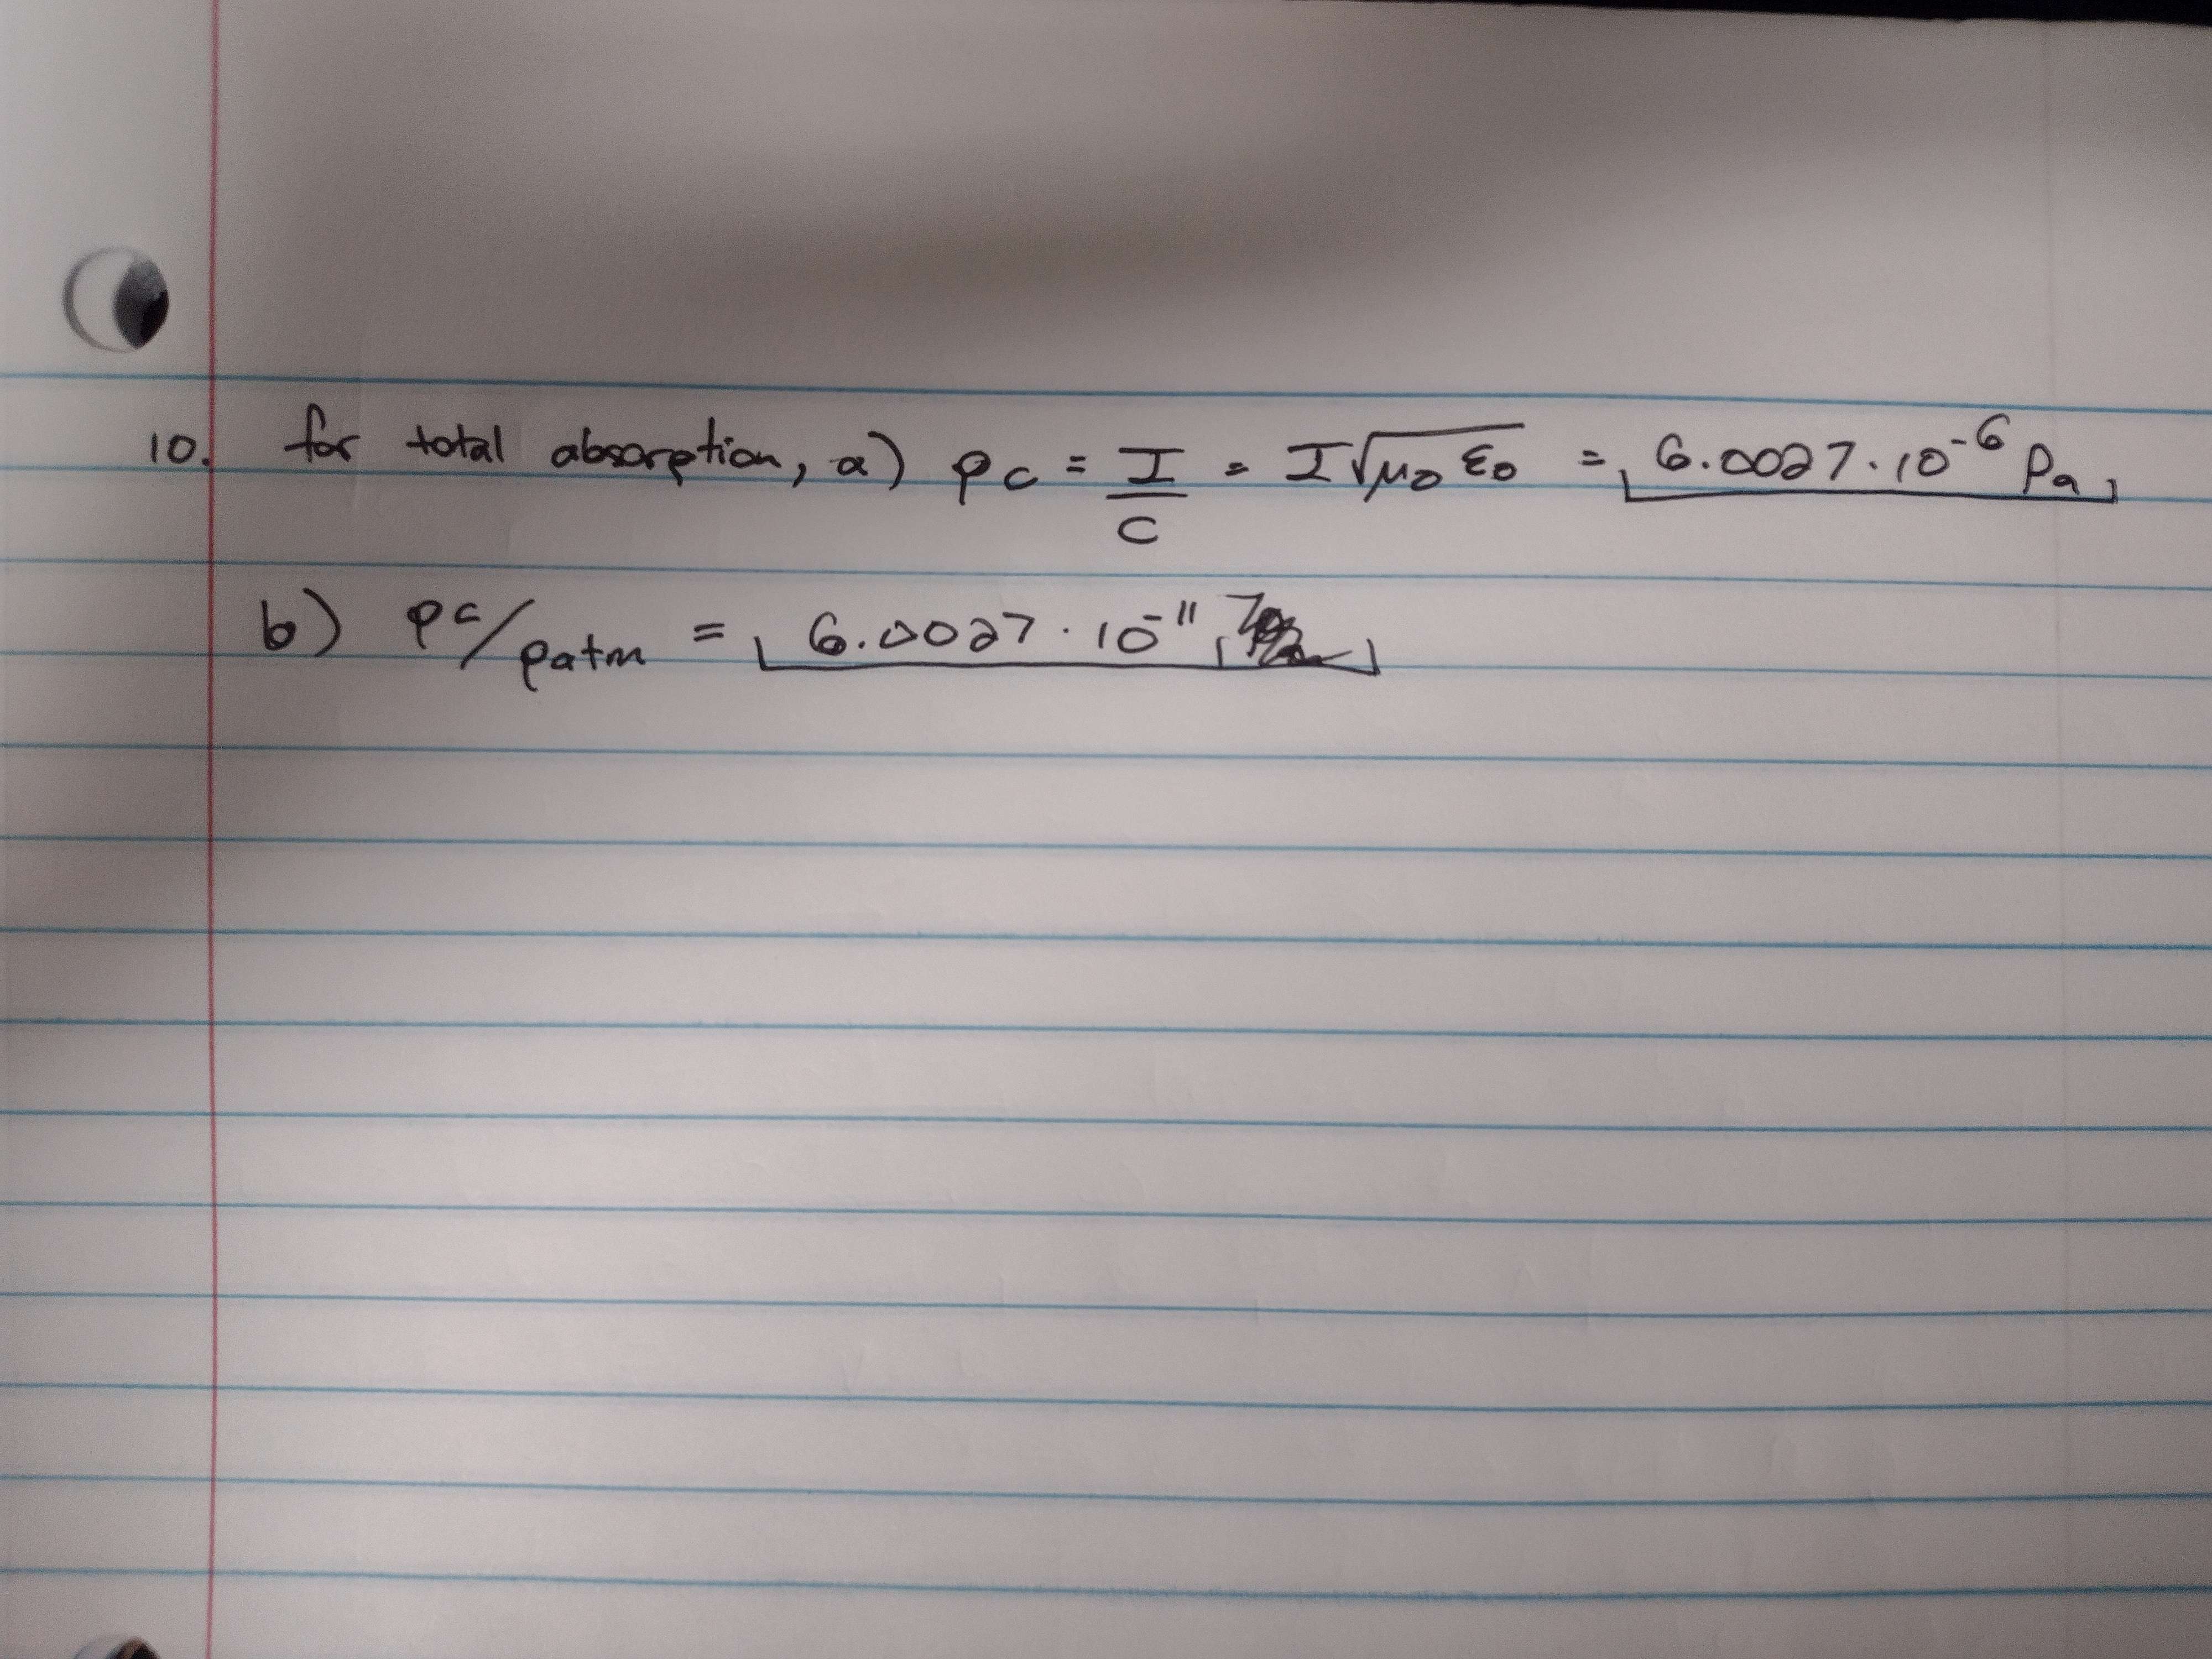 10. for total absorption, a) Pc = I/c = I√μ0 ε0 = 6.0027·10^-6 Pa
b) Pc/Patm = 6.0027·10^-11